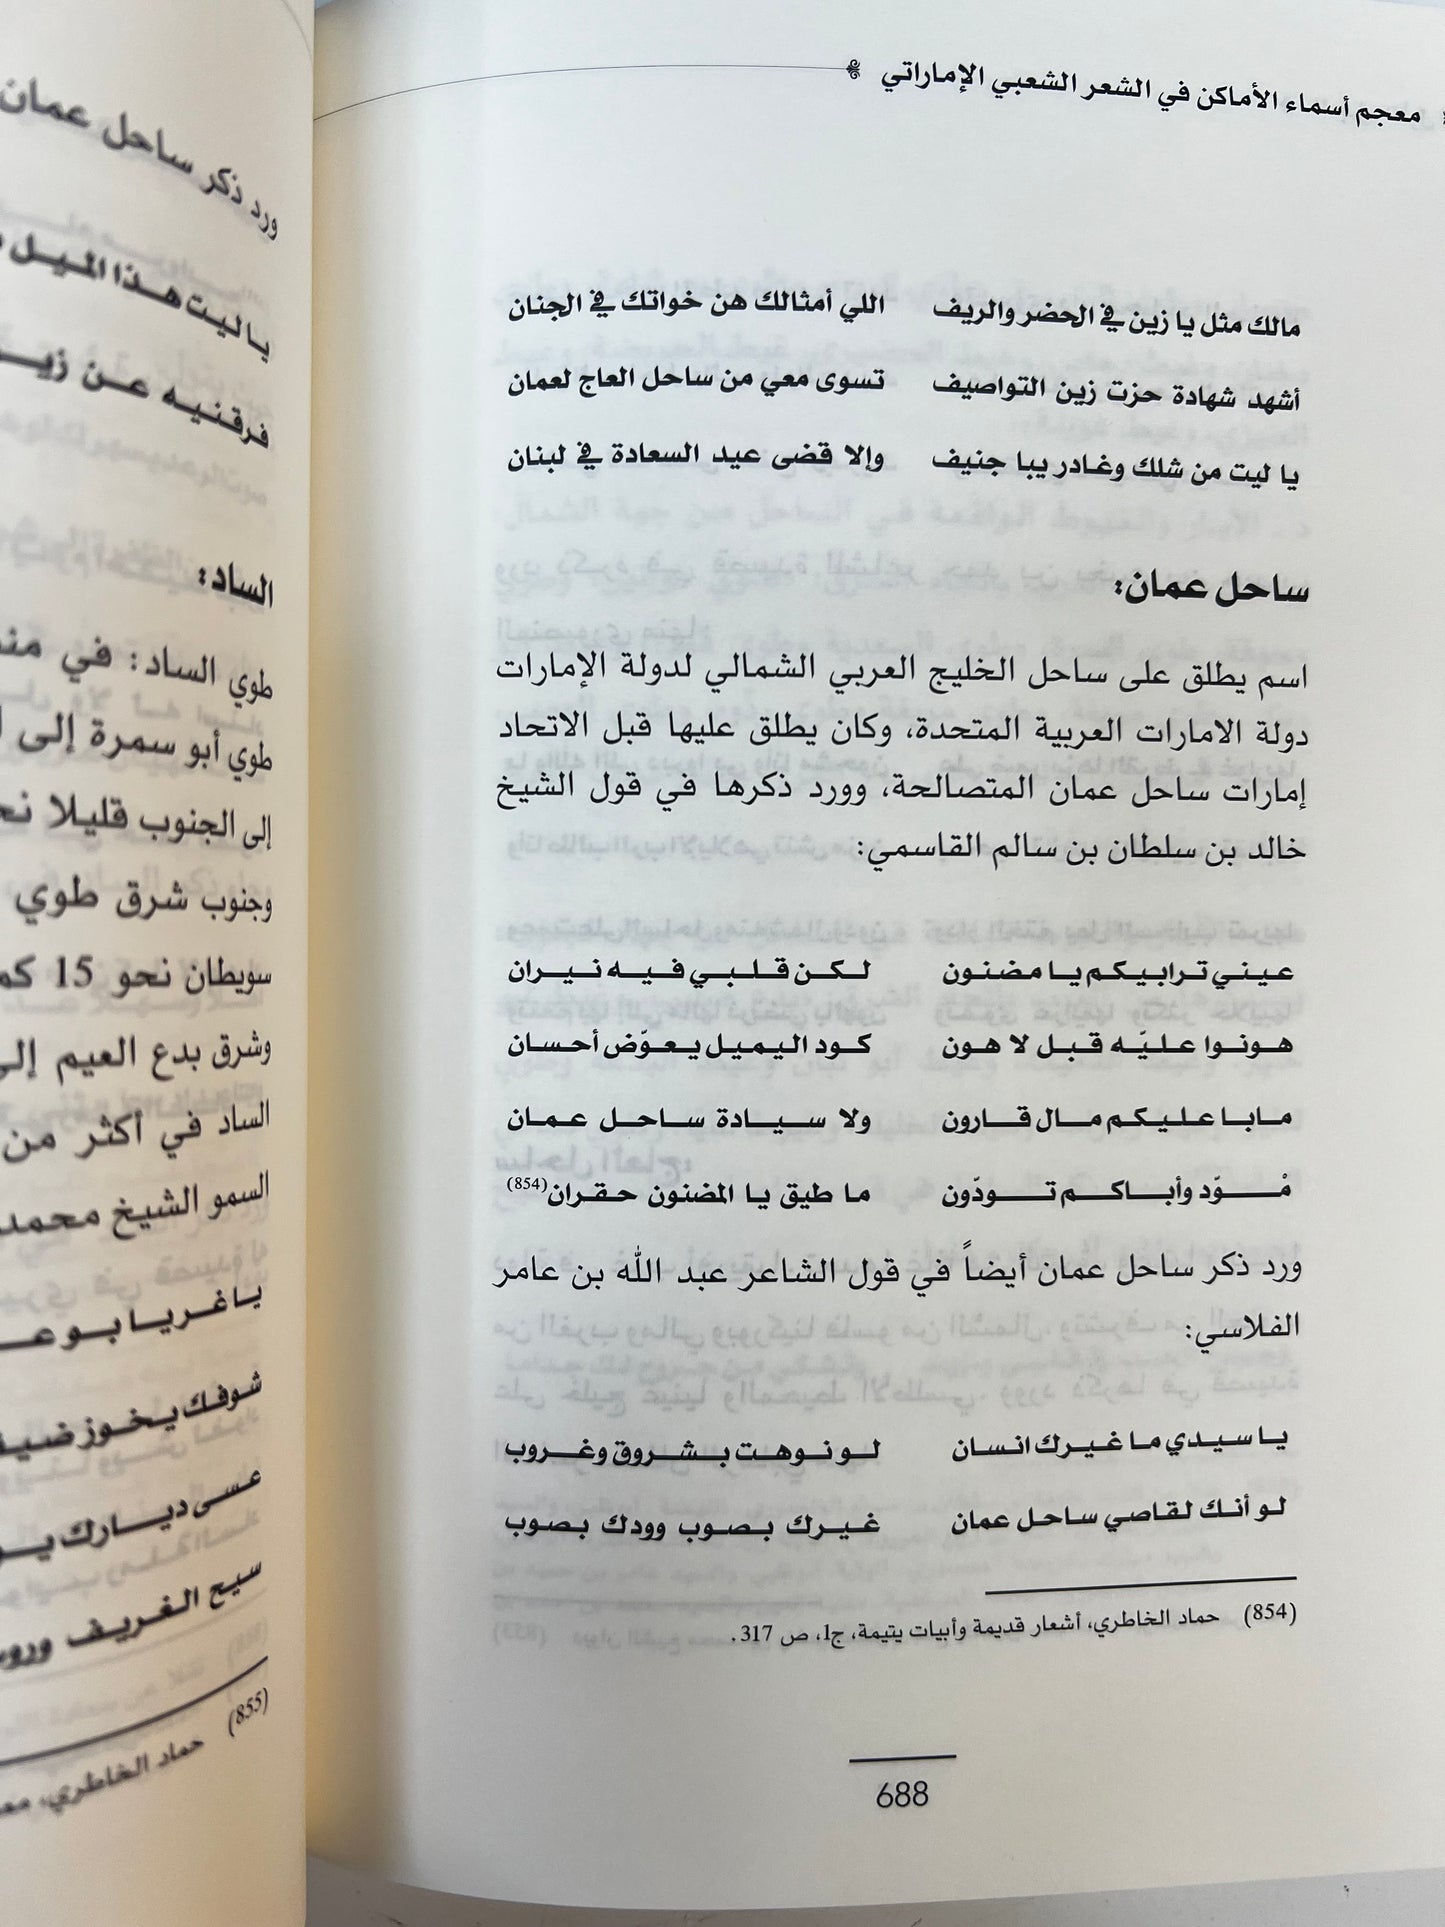 معجم أسماء الأماكن في الشعر الشعبي الإماراتي
مالك مثل يا زين في الحضر والريف اللي أمثالك هن خواتك في الجنان
أشهد شهادة حزت زين التواصيف تسوى معي من ساحل العاج لعمان
يا ليت من شلك وغادر يبا جنيف وإلا قضى عيد السعادة في لبنان
ساحل عمان:
اسم يطلق على ساحل الخليج العربي الشمالي لدولة الإمارات
دولة الامارات العربية المتحدة، وكان يطلق عليها قبل الاتحاد
إمارات ساحل عمان المتصالحة، وورد ذكرها في قول الشيخ
خالد بن سلطان بن سالم القاسمي:
عيني ترابيكم يا مضنون لكن قلبي فيه نيران
هونوا عليّه قبل لا هون كود اليميل يعوّض أحسان
مابا عليكم مال قارون ولا سيادة ساحل عمان
مْوّد وأباكم تودّون ما طيق يا المضنون حقران(854)
ورد ذكر ساحل عمان أيضاً في قول الشاعر عبد الله بن عامر
الفلاسي:
يا سيدي ما غيرك انسان لو نوهت بشروق وغروب
لو أنك لقاصي ساحل عمان غيرك بصوب وودك بصوب
(854) حماد الخاطري، أشعار قديمة وأبيات يتيمة، ج1، ص 317.
688
ورد ذكر ساحل عمان
يا ليت هذا الميل
فرقنيه عن
الساد:
طوي الساد: في
طوي أبو سمرة إلى
إلى الجنوب قليلا
وجنوب شرق طوي
سويطان نحو 15 كم
وشرق بدع العيم إلى
الساد في أكثر من
السمو الشيخ محمد
يا غريا بو
شوفك يخوز
عسى ديارك
سيح الغريف
(855) حماد الخاطري،